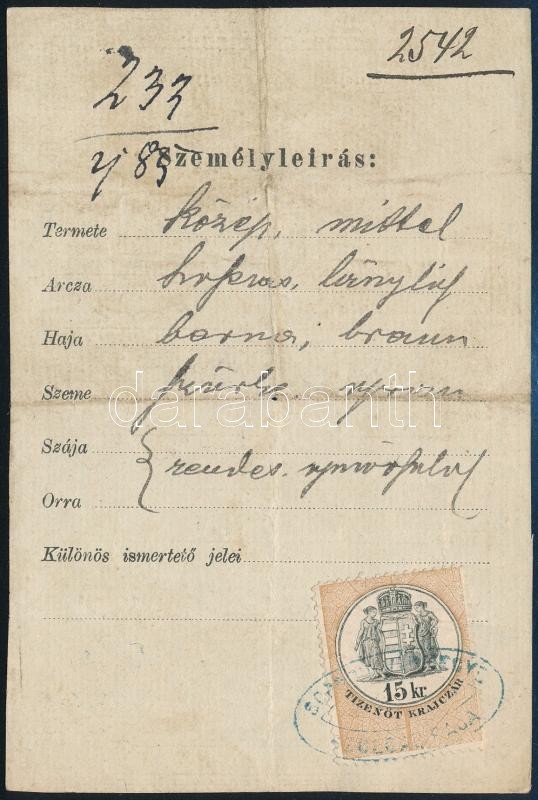 2542
233
Személyleirás:
Termete közép, mittel
Arcza hosszas, länglich
Haja barna, braun
Szeme szürke, grau
Szája
rendes. gewöhnlich
Orra
Különös ismertető jelei
darabanth
15 kr.
TIZENÖT KRAJCZÁR